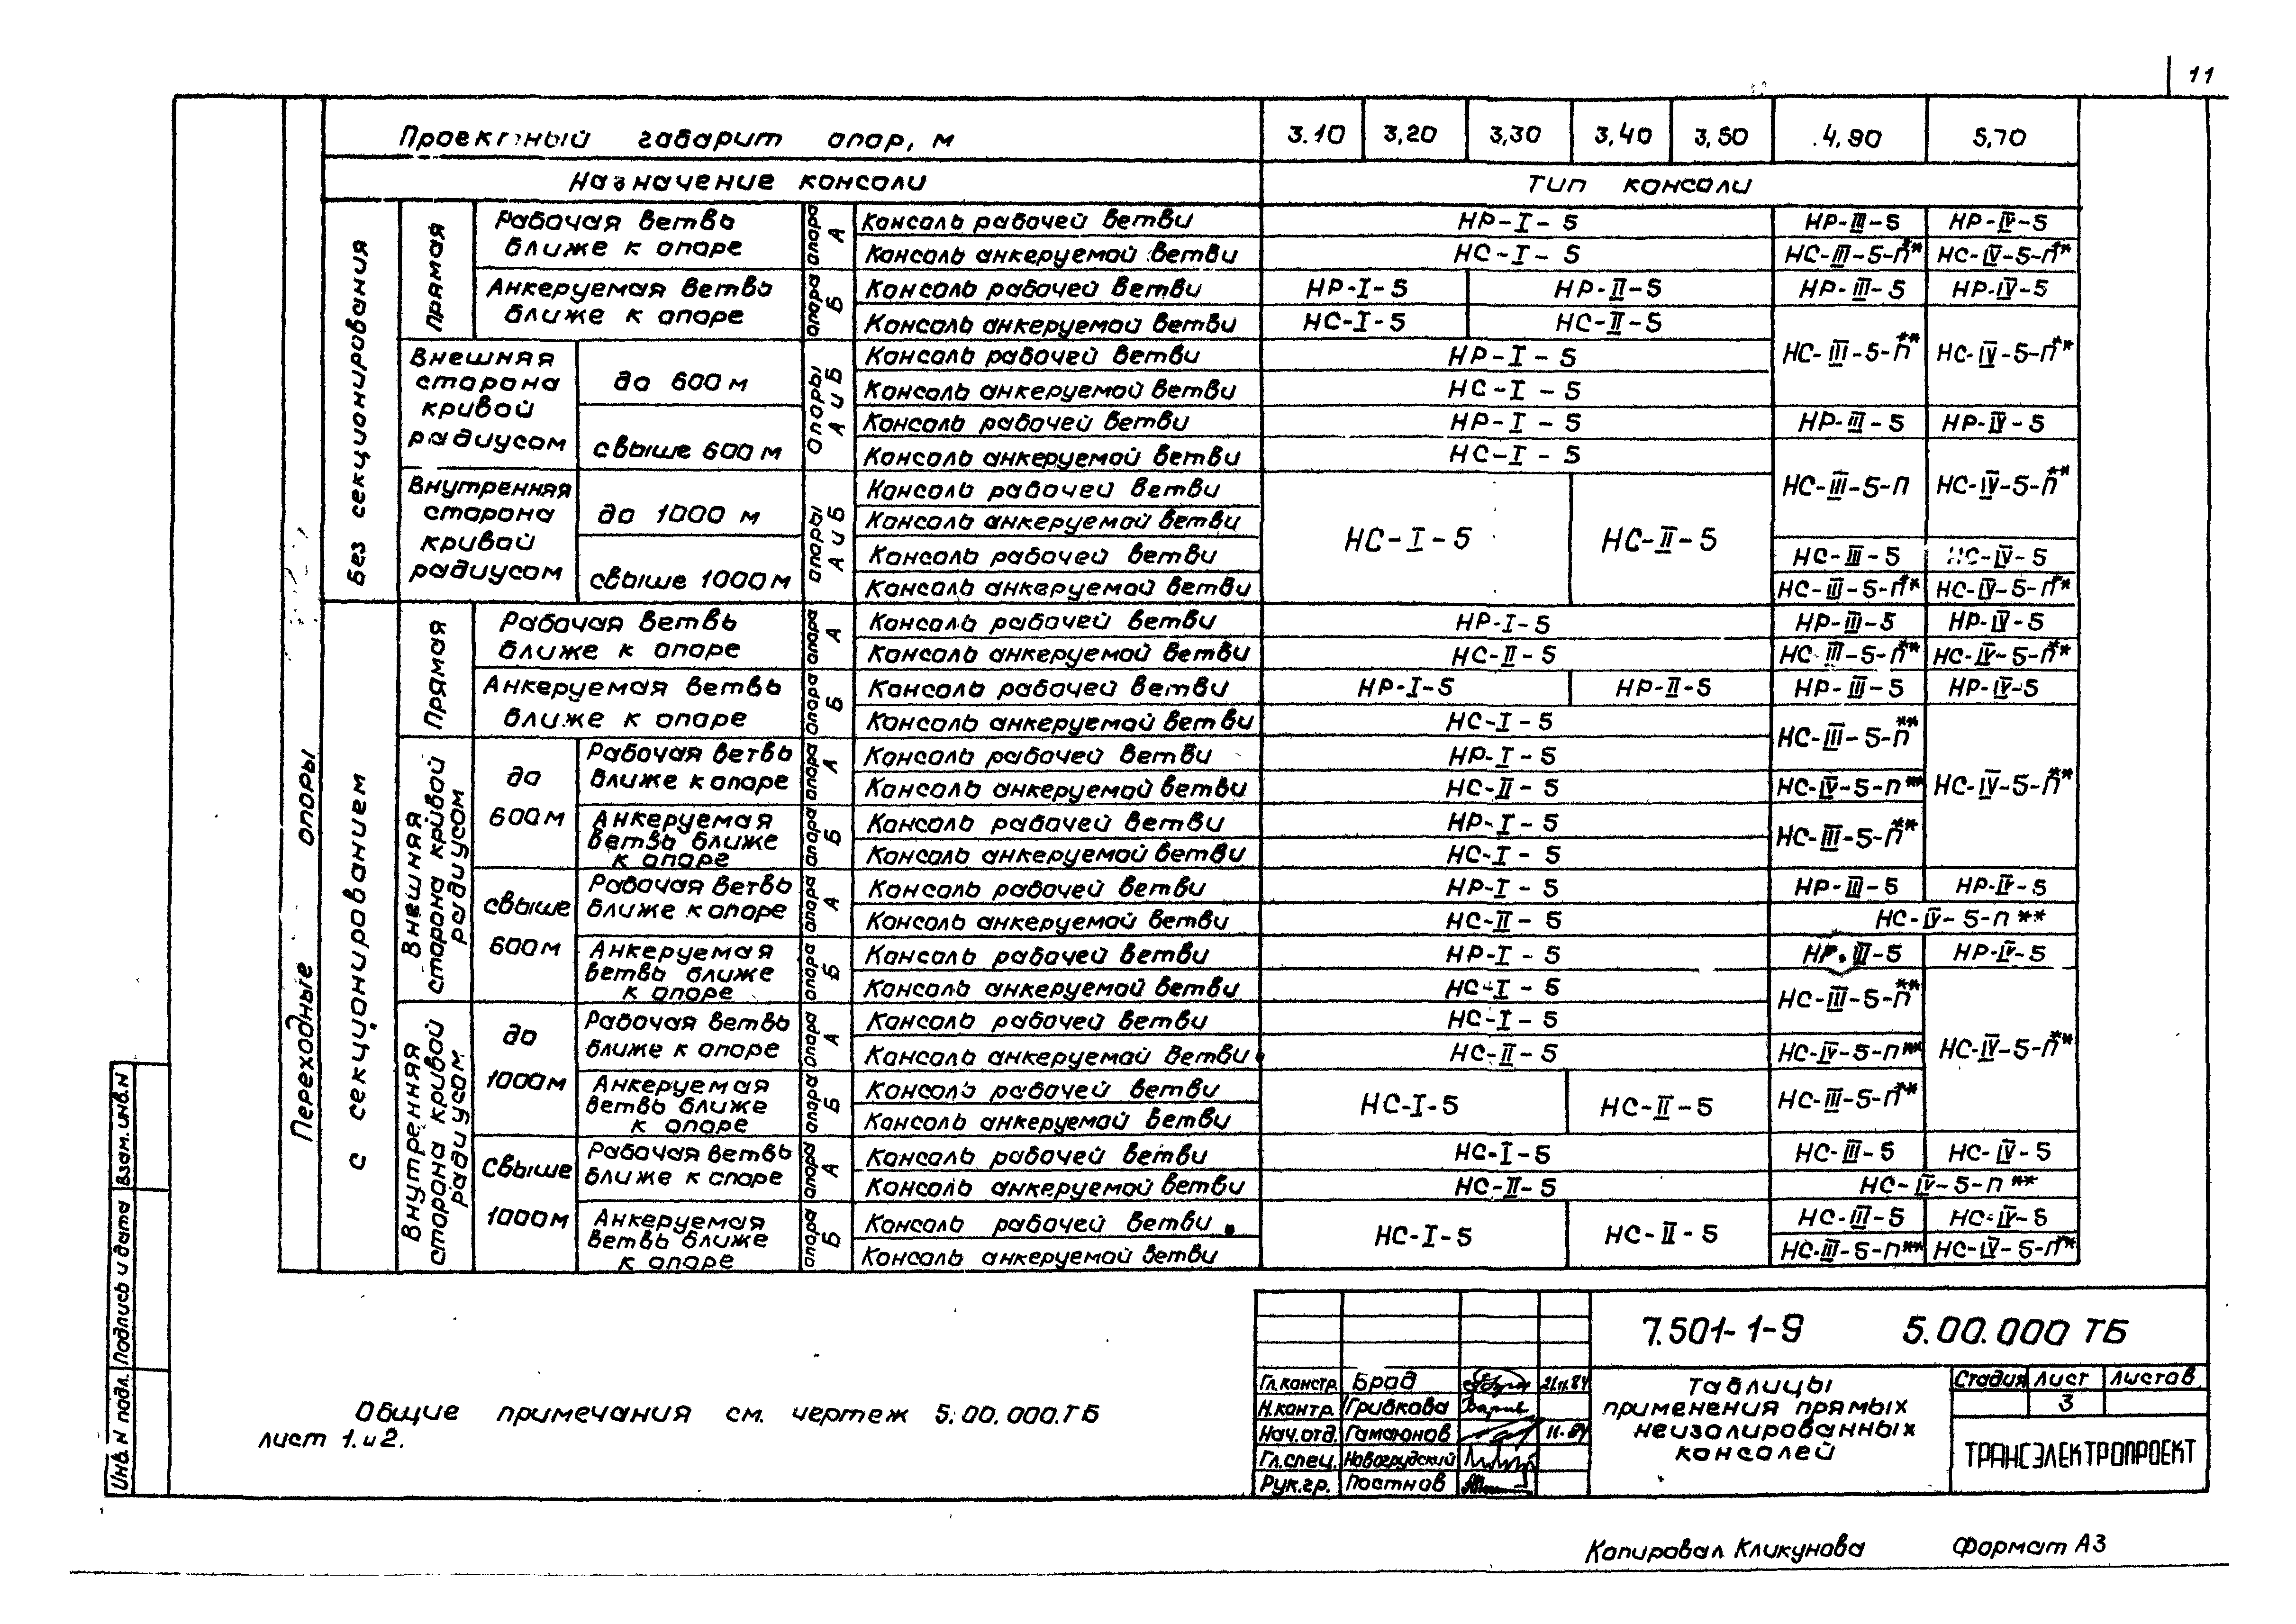 11
Проектный габарит опор, м 3.10 3,20 3,30 3,40 3,50 4,90 5,70
Назначение консоли Тип консоли
Переходные опоры
Без секционирования
Прямая
Рабочая ветвь ближе к опоре опора А Консоль рабочей ветви НР-I-5 НР-III-5 НР-IV-5
Консоль анкеруемой ветви НС-I-5 НС-III-5-П** НС-IV-5-П**
Анкеруемая ветвь ближе к опоре опора Б Консоль рабочей ветви НР-I-5 НР-II-5 НР-III-5 НР-IV-5
Консоль анкеруемой ветви НС-I-5 НС-II-5 НС-III-5-П** НС-IV-5-П**
Внешняя сторона кривой радиусом
до 600 м опоры А и Б Консоль рабочей ветви НР-I-5
Консоль анкеруемой ветви НС-I-5
свыше 600 м Консоль рабочей ветви НР-I-5 НР-III-5 НР-IV-5
Консоль анкеруемой ветви НС-I-5 НС-III-5-П НС-IV-5-П**
Внутренняя сторона кривой радиусом
до 1000 м опоры А и Б Консоль рабочей ветви НС-I-5 НС-II-5
Консоль анкеруемой ветви
свыше 1000 м Консоль рабочей ветви НС-III-5 НС-IV-5
Консоль анкеруемой ветви НС-III-5-П** НС-IV-5-П**
С секционированием
Прямая
Рабочая ветвь ближе к опоре опора А Консоль рабочей ветви НР-I-5 НР-III-5 НР-IV-5
Консоль анкеруемой ветви НС-II-5 НС-III-5-П** НС-IV-5-П**
Анкеруемая ветвь ближе к опоре опора Б Консоль рабочей ветви НР-I-5 НР-II-5 НР-III-5 НР-IV-5
Консоль анкеруемой ветви НС-I-5 НС-III-5-П** НС-IV-5-П**
Внешняя сторона кривой радиусом
до 600 м
Рабочая ветвь ближе к опоре опора А Консоль рабочей ветви НР-I-5
Консоль анкеруемой ветви НС-II-5 НС-IV-5-П**
Анкеруемая ветвь ближе к опоре опора Б Консоль рабочей ветви НР-I-5 НС-III-5-П**
Консоль анкеруемой ветви НС-I-5
свыше 600 м
Рабочая ветвь ближе к опоре опора А Консоль рабочей ветви НР-I-5 НР-III-5 НР-IV-5
Консоль анкеруемой ветви НС-II-5 НС-IV-5-П**
Анкеруемая ветвь ближе к опоре опора Б Консоль рабочей ветви НР-I-5 НР-III-5 НР-IV-5
Консоль анкеруемой ветви НС-I-5 НС-III-5-П** НС-IV-5-П**
Внутренняя сторона кривой радиусом
до 1000 м
Рабочая ветвь ближе к опоре опора А Консоль рабочей ветви НС-I-5
Консоль анкеруемой ветви НС-II-5 НС-IV-5-П**
Анкеруемая ветвь ближе к опоре опора Б Консоль рабочей ветви НС-I-5 НС-II-5 НС-III-5-П**
Консоль анкеруемой ветви
Свыше 1000 м
Рабочая ветвь ближе к опоре опора А Консоль рабочей ветви НС-I-5 НС-III-5 НС-IV-5
Консоль анкеруемой ветви НС-II-5 НС-IV-5-П**
Анкеруемая ветвь ближе к опоре опора Б Консоль рабочей ветви НС-I-5 НС-II-5 НС-III-5 НС-IV-5
Консоль анкеруемой ветви НС-III-5-П** НС-IV-5-П**
Общие примечания см. чертеж 5.00.000.ТБ
лист 1 и 2.
7.501-1-9 5.00.000 ТБ
Гл.констр. Брад 21.11.84
Н.контр. Грибкова
Нач.отд. Гамаюнов 11.84
Гл.спец. Новогрудский
Рук.гр. Постнов
Таблицы
применения прямых
неизолированных
консолей
Стадия Лист Листов
3
ТРАНСЭЛЕКТРОПРОЕКТ
Инв.N подл. Подпись и дата Взам.инв.N
Копировал Кликунова Формат А3